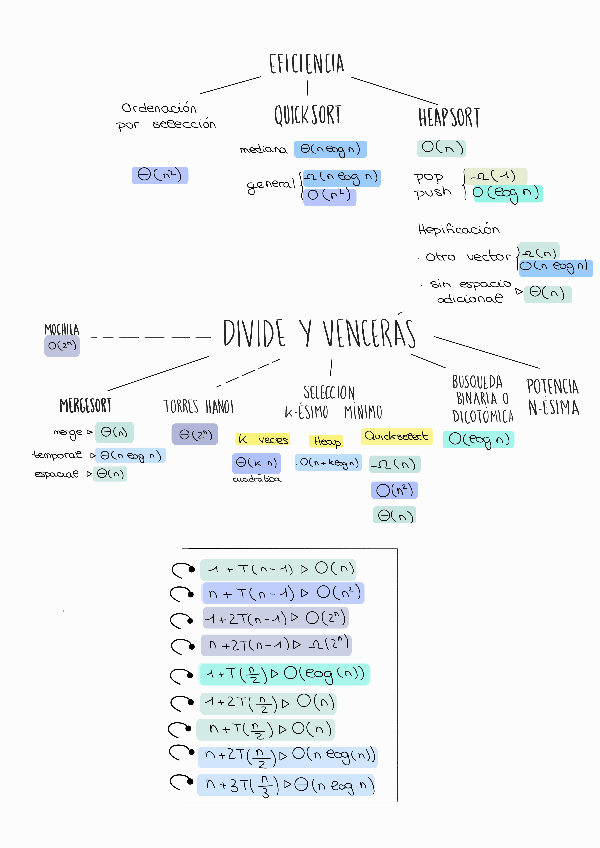 EFICIENCIA
Ordenación
por selección
Θ(n²)
QUICKSORT
mediana Θ(n log n)
general Ω(n log n)
O(n²)
HEAPSORT
O(n)
pop Ω(1)
push O(log n)
Hepificación
· otro vector Ω(n)
O(n log n)
· sin espacio
adicional ▷ Θ(n)
DIVIDE Y VENCERÁS
MOCHILA
O(2ⁿ)
MERGESORT
merge ▷ Θ(n)
temporal ▷ Θ(n log n)
espacial ▷ Θ(n)
TORRES HANOI
Θ(2ⁿ)
SELECCIÓN
K-ÉSIMO MÍNIMO
K veces
Θ(k n)
cuadrática
Heap
·O(n+klog n)
Quickselect
Ω(n)
O(n²)
Θ(n)
BÚSQUEDA
BINARIA O
DICOTÓMICA
O(log n)
POTENCIA
N-ÉSIMA
1+T(n-1) ▷ O(n)
n+T(n-1) ▷ O(n²)
1+2T(n-1) ▷ O(2ⁿ)
n+2T(n-1) ▷ Ω(2ⁿ)
1+T(n/2) ▷ O(log(n))
1+2T(n/2) ▷ O(n)
n+T(n/2) ▷ O(n)
n+2T(n/2) ▷ O(n log(n))
n+3T(n/3) ▷ Θ(n log n)